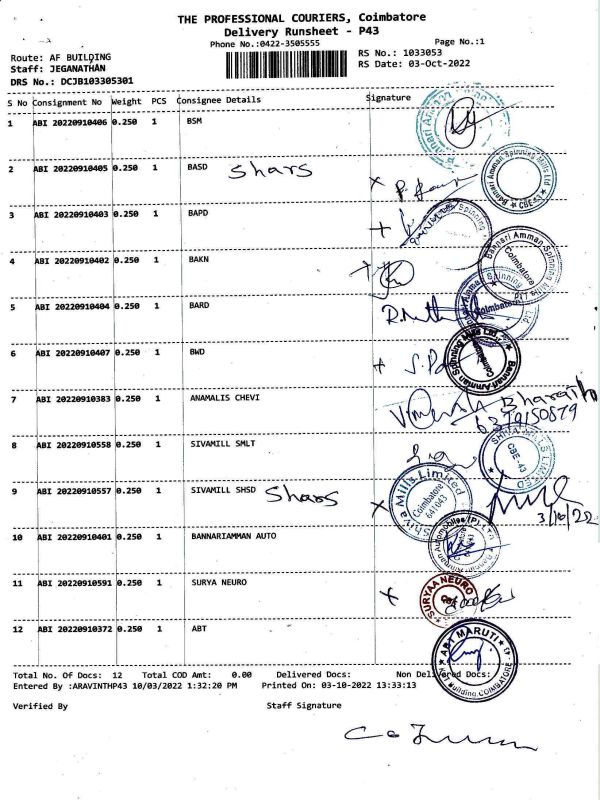 THE PROFESSIONAL COURIERS, Coimbatore
Delivery Runsheet - P43
Phone No.:0422-3505555
Page No.:1
Route: AF BUILDING
RS No.: 1033053
Staff: JEGANATHAN
RS Date: 03-Oct-2022
DRS No.: DCJB103305301
S No Consignment No Weight PCS Consignee Details Signature
1 ABI 20220910406 0.250 1 BSM
2 ABI 20220910405 0.250 1 BASD shars
Bannari Amman Spinning Mills Ltd CBE-43
3 ABI 20220910403 0.250 1 BAPD
Spinning
4 ABI 20220910402 0.250 1 BAKN
Bannari Amman Spinning Coimbatore
5 ABI 20220910404 0.250 1 BARD
Spinning Coimbatore Ltd
6 ABI 20220910407 0.250 1 BWD
Bannari Amman Spinning Mills Ltd Coimbatore
7 ABI 20220910383 0.250 1 ANAMALIS CHEVI
Bharath
6379150879
8 ABI 20220910558 0.250 1 SIVAMILL SMLT
SHIVA MILLS LIMITED CBE-43
9 ABI 20220910557 0.250 1 SIVAMILL SHSD Shars
Shiva Mills Limited Coimbatore 641043
3/10/22
10 ABI 20220910401 0.250 1 BANNARIAMMAN AUTO
Automobiles (P) Ltd
11 ABI 20220910591 0.250 1 SURYA NEURO
SURYAA NEURO
12 ABI 20220910372 0.250 1 ABT
ABT MARUTI Building, COIMBATORE
Total No. Of Docs: 12 Total COD Amt: 0.00 Delivered Docs: Non Delivered Docs:
Entered By :ARAVINTHP43 10/03/2022 1:32:20 PM Printed On: 03-10-2022 13:33:13
Verified By Staff Signature